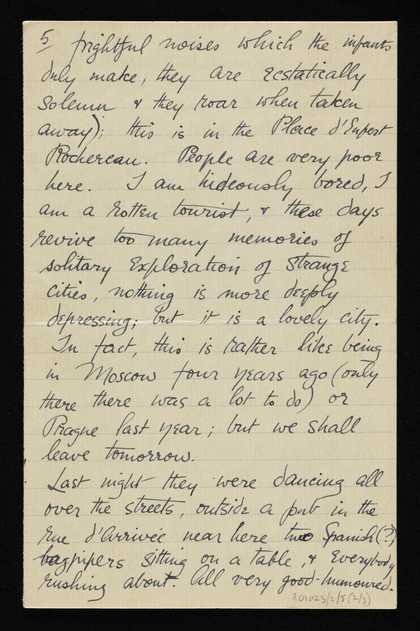 5 frightful noises which the infants
duly make, they are ecstatically
solemn & they roar when taken
away); this is in the Place d'Enfert
Rochereau. People are very poor
here. I am hideously bored, I
am a rotten tourist, & these days
revive too many memories of
solitary exploration of strange
cities, nothing is more deeply
depressing; but it is a lovely city.
In fact, this is rather like being
in Moscow four years ago (only
there there was a lot to do) or
Prague last year; but we shall
leave tomorrow.
Last night they were dancing all
over the streets, outside a pub in the
rue d'Arrivée near here two Spanish (?)
bagpipers sitting on a table, & everybody
rushing about. All very good-humoured.